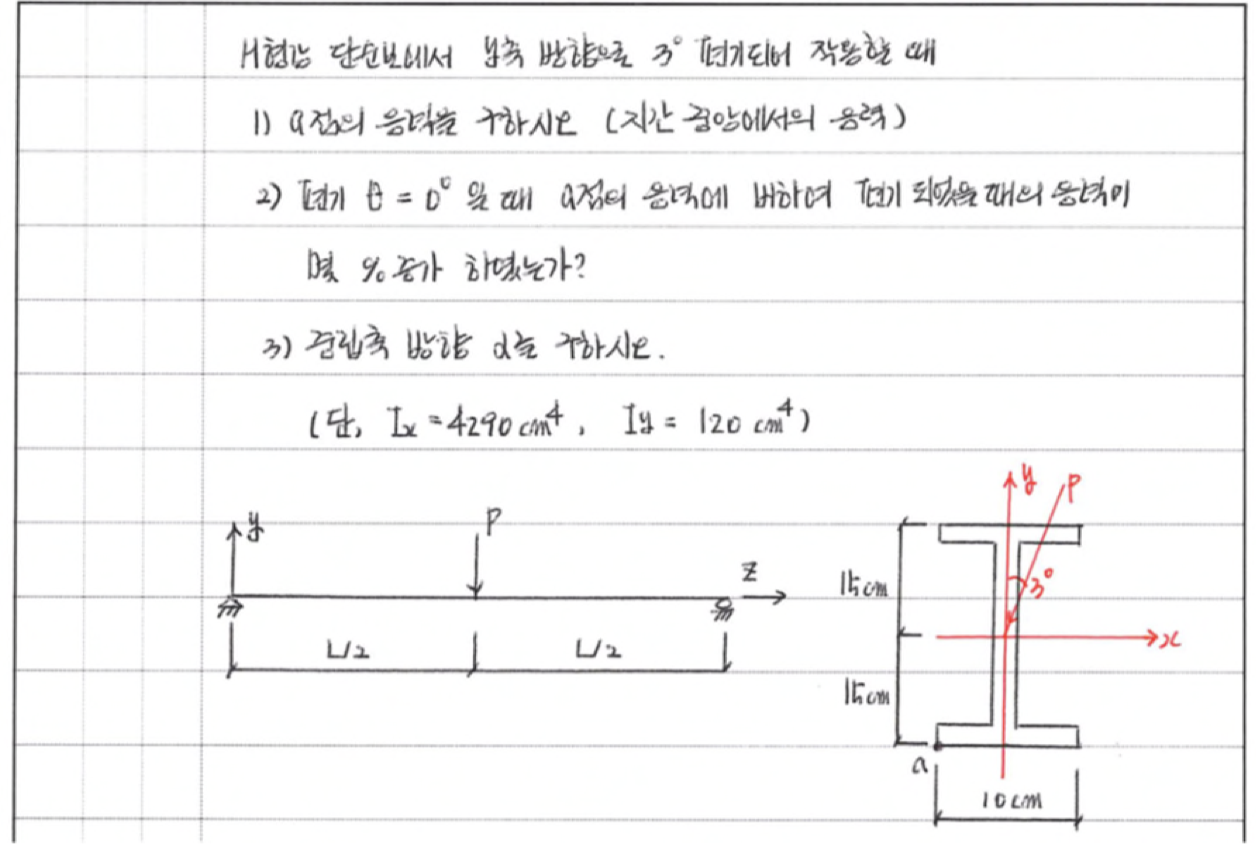 H형강 단순보에서 y축 방향으로 3° 편기되어 작용할 때
1) a점의 응력을 구하시오 (지간 중앙에서의 응력)
2) 편기 θ = 0° 일 때 a점의 응력에 비하여 편기 되었을 때의 응력이
몇 % 증가 하였는가?
3) 중립축 방향 α를 구하시오.
(단, Ix = 4290 cm⁴, Iy = 120 cm⁴)
y
P
z
L/2
L/2
y
P
3°
x
15cm
15cm
a
10cm